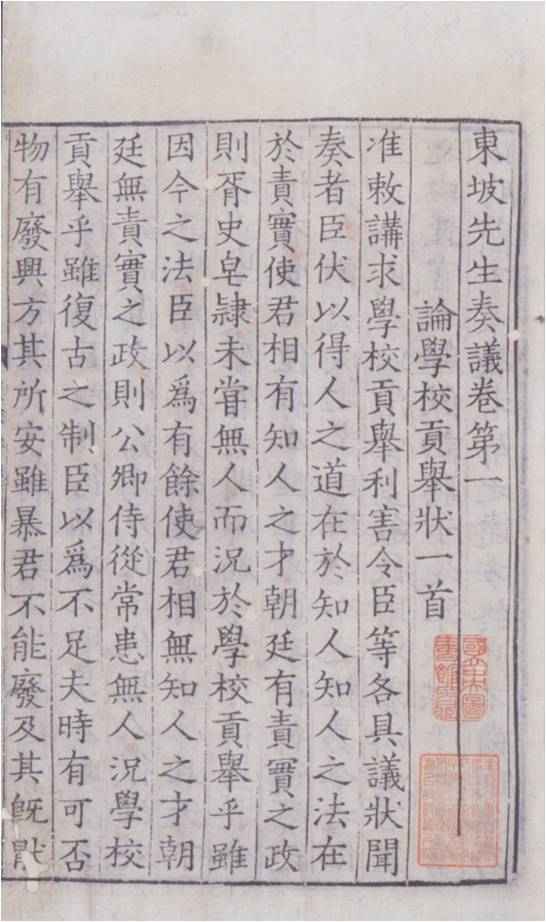 東坡先生奏議卷第一
論學校貢舉狀一首
准敕講求學校貢舉利害令臣等各具議狀聞
奏者臣伏以得人之道在於知人知人之法在
於責實使君相有知人之才朝廷有責實之政
則胥史皂隷未甞無人而況於學校貢舉乎雖
因今之法臣以爲有餘使君相無知人之才朝
廷無責實之政則公卿侍從常患無人況學校
貢舉乎雖復古之制臣以爲不足夫時有可否
物有廢興方其所安雖暴君不能廢及其旣猒